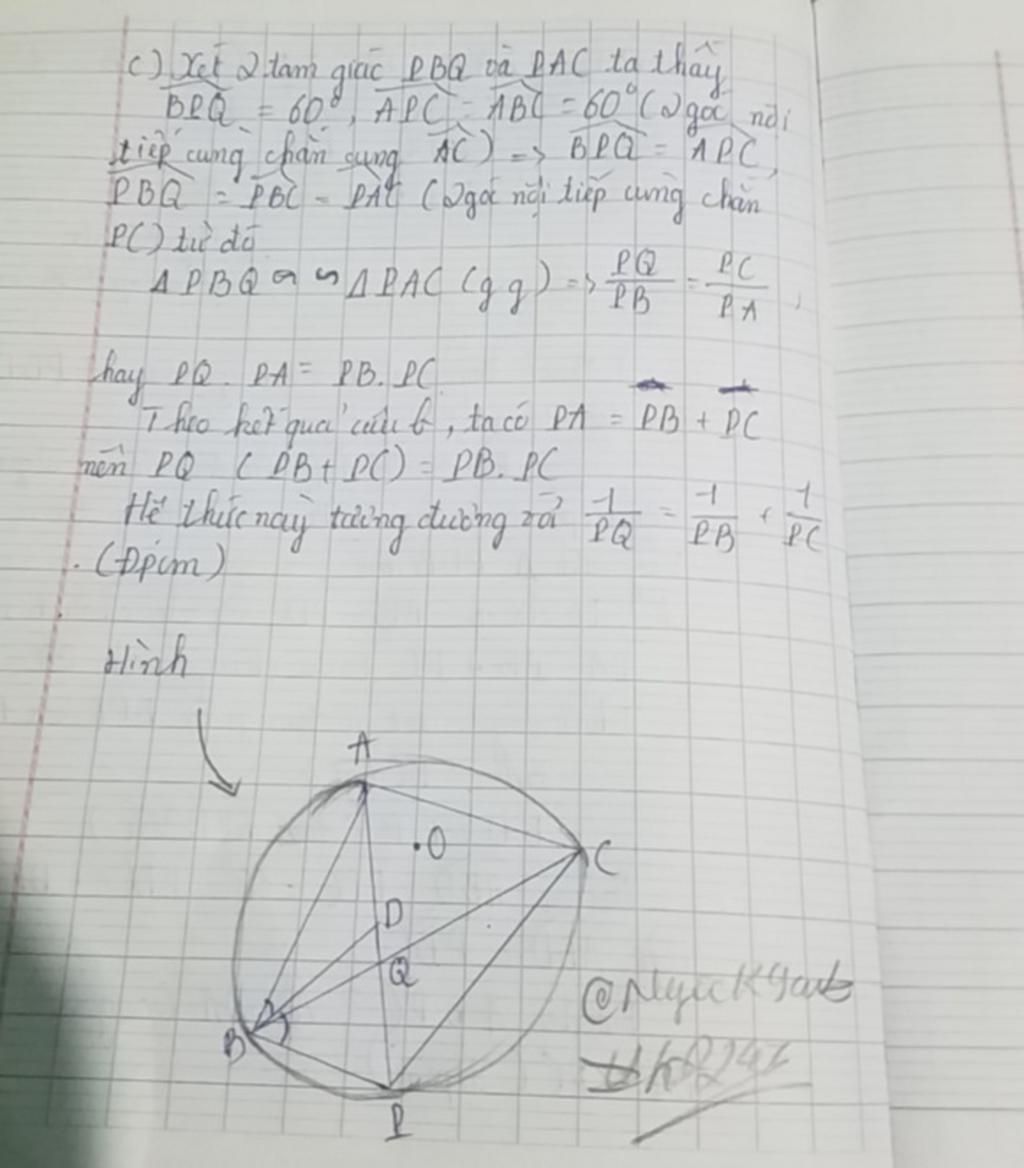 c) Xét 2 tam giác PBQ và PAC ta thấy
BPQ = 60°, APC = ABC = 60° (2 góc nội
tiếp cùng chắn cung AC) => BPQ = APC,
PBQ = PBC = PAC (2 góc nội tiếp cùng chắn
PC) từ đó
ΔPBQ ∽ ∽ ΔPAC (g g) => PQ/PB = PC/PA,
hay PQ. PA = PB. PC
Theo kết quả câu b, ta có PA = PB + PC
nên PQ (PB + PC) = PB. PC
Hệ thức này tương đương với 1/PQ = 1/PB + 1/PC
. (Đpcm)
Hình
A
O
C
D
Q
B
P